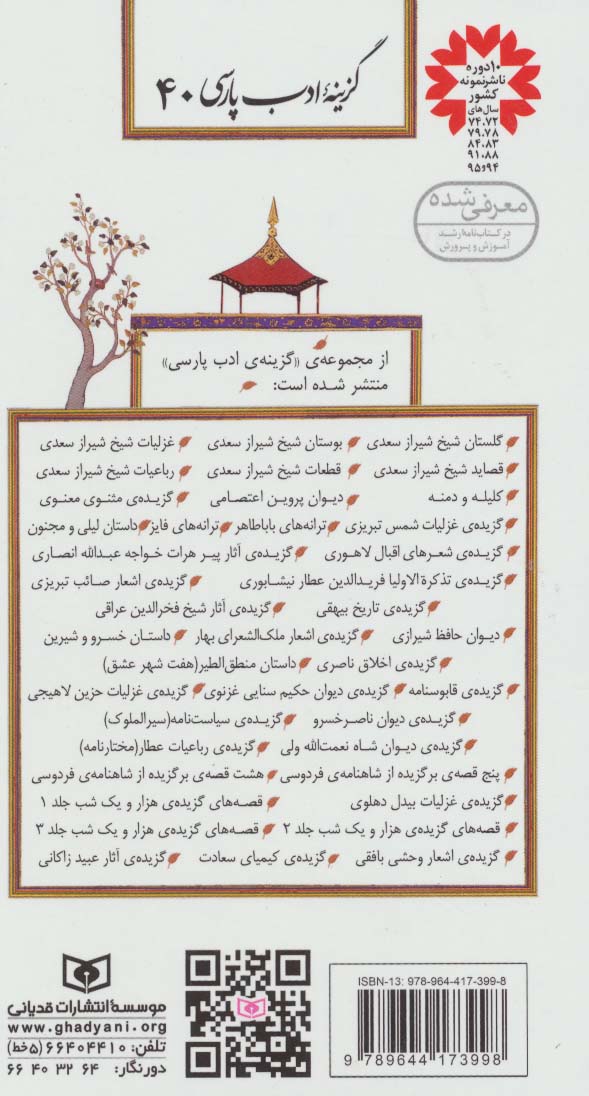 گزینهٔ ادب پارسی ۴۰
۱۰ دوره
ناشر نمونه
کشور
سال‌های
۷۴،۷۲
۷۹،۷۸
۸۴،۸۳
۹۱،۸۸
۹۴و۹۵
معرفی شده
در کتاب‌نامه رشد
آموزش و پرورش
از مجموعه‌ی «گزینه‌ی ادب پارسی»
منتشر شده است:
گلستان شیخ شیراز سعدی بوستان شیخ شیراز سعدی غزلیات شیخ شیراز سعدی
قصاید شیخ شیراز سعدی قطعات شیخ شیراز سعدی رباعیات شیخ شیراز سعدی
کلیله و دمنه دیوان پروین اعتصامی گزیده‌ی مثنوی معنوی
گزیده‌ی غزلیات شمس تبریزی ترانه‌های باباطاهر ترانه‌های فایز داستان لیلی و مجنون
گزیده‌ی شعرهای اقبال لاهوری گزیده‌ی آثار پیر هرات خواجه عبدالله انصاری
گزیده‌ی تذکرة الاولیا فریدالدین عطار نیشابوری گزیده‌ی اشعار صائب تبریزی
گزیده‌ی تاریخ بیهقی گزیده‌ی آثار شیخ فخرالدین عراقی
دیوان حافظ شیرازی گزیده‌ی اشعار ملک‌الشعرای بهار داستان خسرو و شیرین
گزیده‌ی اخلاق ناصری داستان منطق‌الطیر(هفت شهر عشق)
گزیده‌ی قابوسنامه گزیده‌ی دیوان حکیم سنایی غزنوی گزیده‌ی غزلیات حزین لاهیجی
گزیده‌ی دیوان ناصرخسرو گزیده‌ی سیاست‌نامه(سیرالملوک)
گزیده‌ی دیوان شاه نعمت‌الله ولی گزیده‌ی رباعیات عطار(مختارنامه)
پنج قصه‌ی برگزیده از شاهنامه‌ی فردوسی هشت قصه‌ی برگزیده از شاهنامه‌ی فردوسی
گزیده‌ی غزلیات بیدل دهلوی قصه‌های گزیده‌ی هزار و یک شب جلد ۱
قصه‌های گزیده‌ی هزار و یک شب جلد ۲ قصه‌های گزیده‌ی هزار و یک شب جلد ۳
گزیده‌ی اشعار وحشی بافقی گزیده‌ی کیمیای سعادت گزیده‌ی آثار عبید زاکانی
ISBN-13: 978-964-417-399-8
9 789644 173998
موسسهٔ انتشارات قدیانی
www.ghadyani.org
تلفن: ۶۶۴۰۴۴۱۰ (۵ خط)
دورنگار: ۶۶ ۴۰ ۳۲ ۶۴